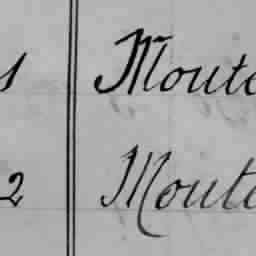 1 Moute
2 Moute